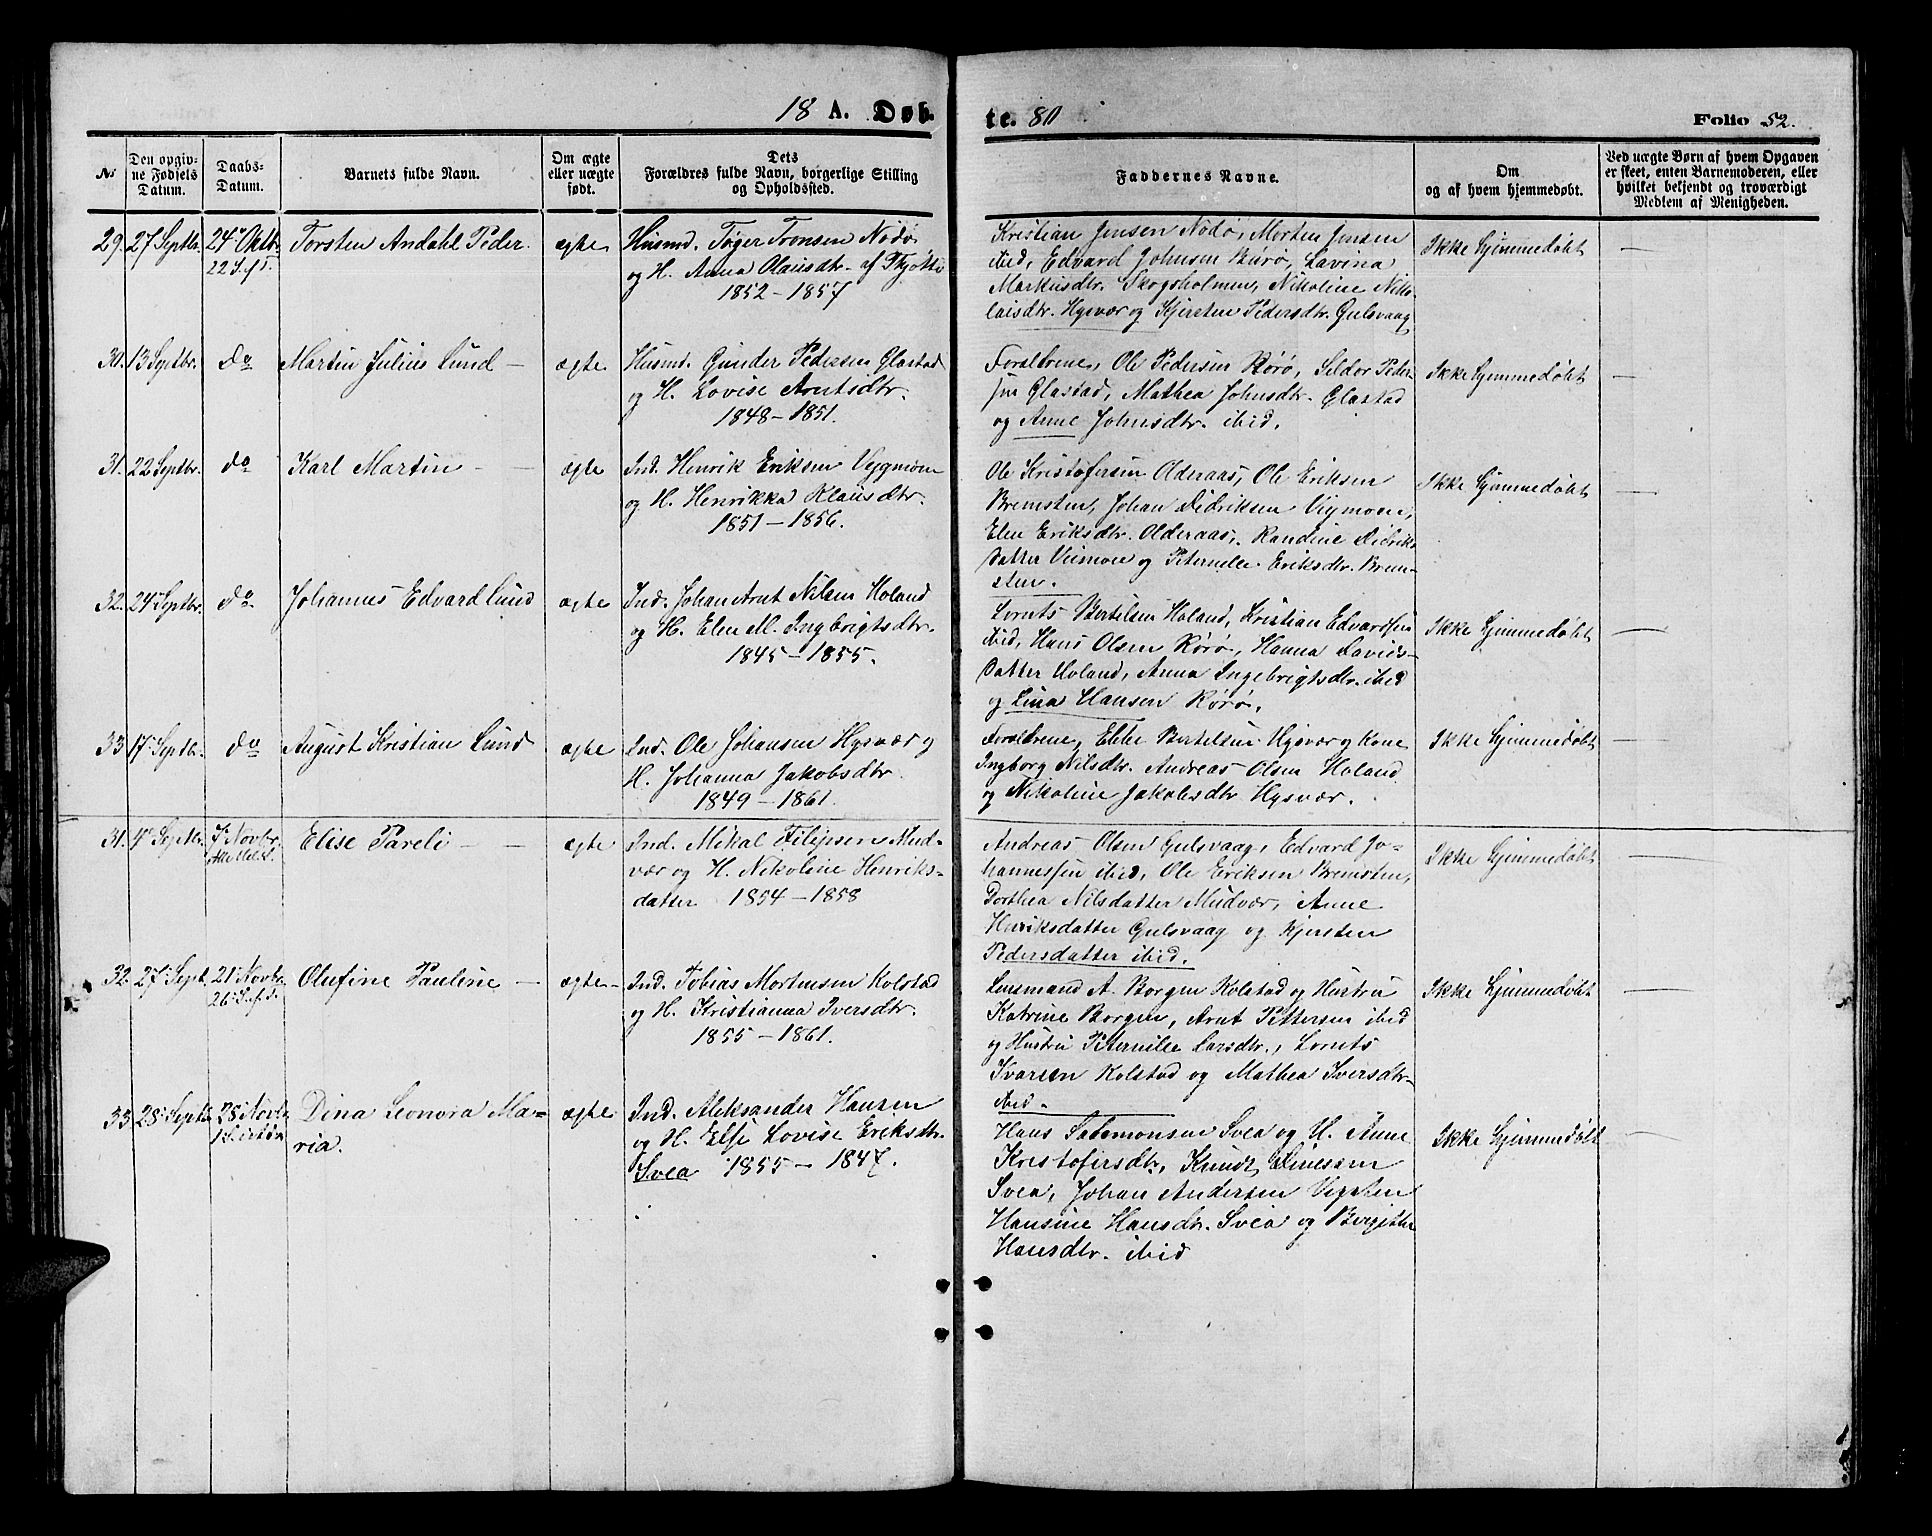 18 A. Døb-
te. 80
Folio 52.
No
Den opgiv-
ne Fødsels
Datum.
Daabs-
Datum.
Barnets fulde Navn.
Om ægte
eller uægte
født.
Dets
Forældres fulde Navn, borgerlige Stilling
og Opholdssted.
Faddernes Navne.
Om
og af hvem hjemmedøbt.
Ved uægte Børn af hvem Opgaven
er skeet, enten Barnemoderen, eller
hvilket bekjendt og troværdigt
Medlem af Menigheden.
29. 27 Septbr. 24 Oktbr. Torsten Andahl Peder. ægte Husmd. Tøger Tronsen Nödö
22 S. e. f. T. og H. Anna Olausdtr. af Thjøttø
1852 – 1857
Kristian Jensen Nödö, Morten Jensen
ibid, Edvard Johnsen Burø, Lavina
Markusdtr. Skogsholmen, Nikoline Niko-
laisdtr. Hysvær og Kjersten Pedersdtr. Gulsvaag
Ikke hjemmedøbt —
30. 13 Septbr. do Martin Julius Lund — ægte Husmd. Gunder Pedersen Glastad
og H. Lovise Arntsdtr.
1848 – 1851.
Forældrene, Ole Pedersen Rörö, Seldor Peder-
sen Glastad, Mathea Johnsdtr. Glastad
og Anne Johnsdtr. ibid.
Ikke hjemmedøbt —
31. 22 Septbr. do Karl Martin — ægte Ind. Henrik Eriksen Vejgmoen
og H. Henrikka Klausdtr.
1851 – 1856.
Ole Kristofersen Olderaas, Ole Eriksen
Bremsten, Johan Didriksen Vigmoen,
Elen Eriksdtr. Olderaas, Randine Didriks-
datter Veimoen og Peternille Eriksdtr. Brem-
sten.
Ikke hjemmedøbt —
32. 24 Septbr. do Johannes Edvard Lund ægte Ind. Johan Arnt Nilsen Holand
og H. Elen M. Ingbrigtsdtr.
1845 – 1855.
Lornts Bertelsen Holand, Kristian Edvardsen
ibid, Hans Olsen Rörö, Hanna Davids-
datter Holand, Anna Ingebrigtsdtr. ibid
og Lina Hansen Rörö.
Ikke hjemmedøbt —
33 17 Septbr. do August Kristian Lund ægte Ind. Ole Johansen Hysvær og
H. Johanna Jakobsdtr.
1849 – 1861.
Forældrene, Ebbe Bertelsen Hysvær og Kone
Ingborg Nilsdtr. Andreas Olsen Holand
og Nikoline Jakobsdtr Hysvær.
Ikke hjemmedøbt —
31. 4 Septbr. 7 Novbr. Elise Pareli — ægte Ind. Mikal Filipsen Mud-
vær og H. Nikoline Henriks-
datter 1854 – 1858
Andreas Olsen Gulsvaag, Edvard Jo-
hannessen ibid, Ole Eriksen Bremsten,
Dorthea Nilsdatter Mudvær, Anne
Henriksdatter Gulsvaag og Kjersten
Pedersdatter ibid.
Ikke hjemmedøbt —
32. 27 Sept. 21 Novbr. Olufine Pauline — ægte Ind. Tobias Mortensen Kolstad
26 S. e. f. T. og H. Kristianna Iversdtr.
1855 – 1861.
Lensmand A. Borgen Kolstad og Hustru
Katrine Borgen, Arnt Pettersen ibid
og Hustru Peternille Larsdtr., Lornts
Ivarsen Kolstad og Mathea Iversdtr.
ibid.
Ikke hjemmedøbt —
33 28 Septbr 28 Novbr Dina Leonora Ma- ægte Ind. Aleksander Hansen
ria. og H. Else Lovise Eriksdtr.
Svea 1855 – 1847.
Hans Salomonsen Svea og H. Anne
Kristofersdtr, Knudt Dinessen
Svea, Johan Andersen Vigsten
Hansine Hansdtr. Svea og Bergitte
Hansdtr. ibid
Ikke hjemmedøbt —